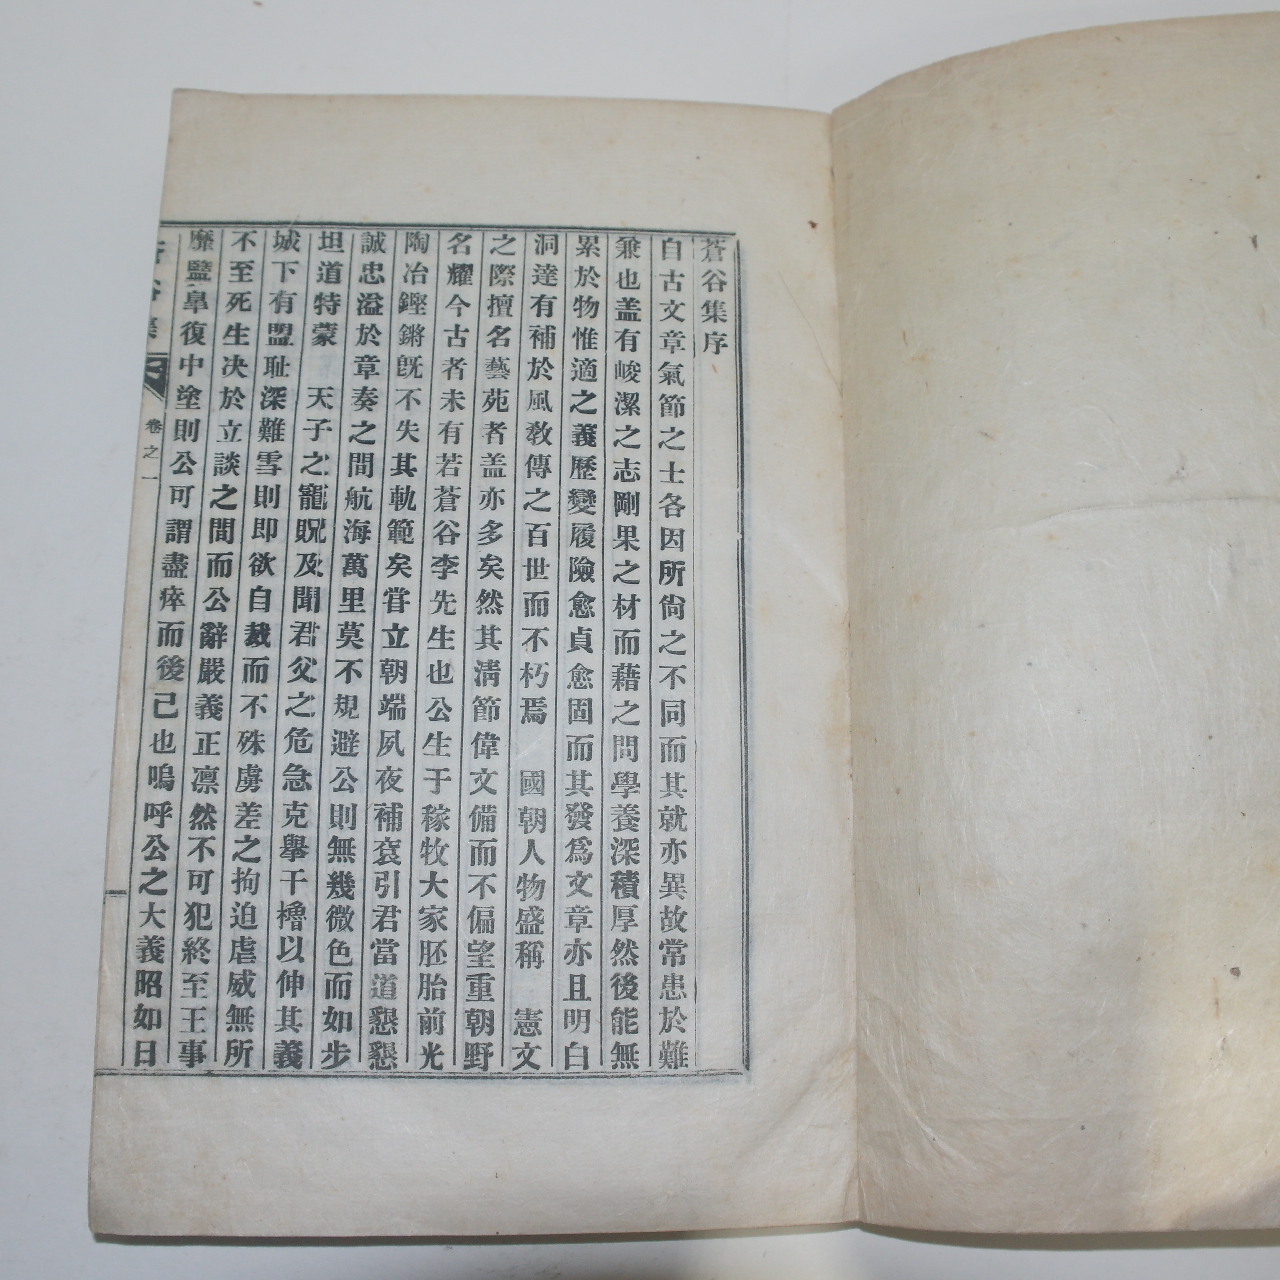 蒼谷集序
自古文章氣節之士各因所尙之不同而其就亦異故常患於難
兼也盖有峻潔之志剛果之材而藉之問學養深積厚然後能無
累於物惟適之義歷變履險愈貞愈固而其發爲文章亦且明白
洞達有補於風敎傳之百世而不朽焉 國朝人物盛稱 憲文
之際擅名藝苑者盖亦多矣然其淸節偉文備而不偏望重朝野
名耀今古者未有若蒼谷李先生也公生于稼牧大家胚胎前光
陶冶鏗鏘旣不失其軌範矣甞立朝端夙夜補袞引君當道懇懇
誠忠溢於章奏之間航海萬里莫不規避公則無幾微色而如步
坦道特蒙 天子之寵貺及聞君父之危急克擧干櫓以伸其義
城下有盟耻深難雪則即欲自裁而不殊虜差之拘迫虐威無所
不至死生决於立談之間而公辭嚴義正凛然不可犯終至王事
靡盬皐復中塗則公可謂盡瘁而後己也嗚呼公之大義昭如日
蒼谷集
卷之一